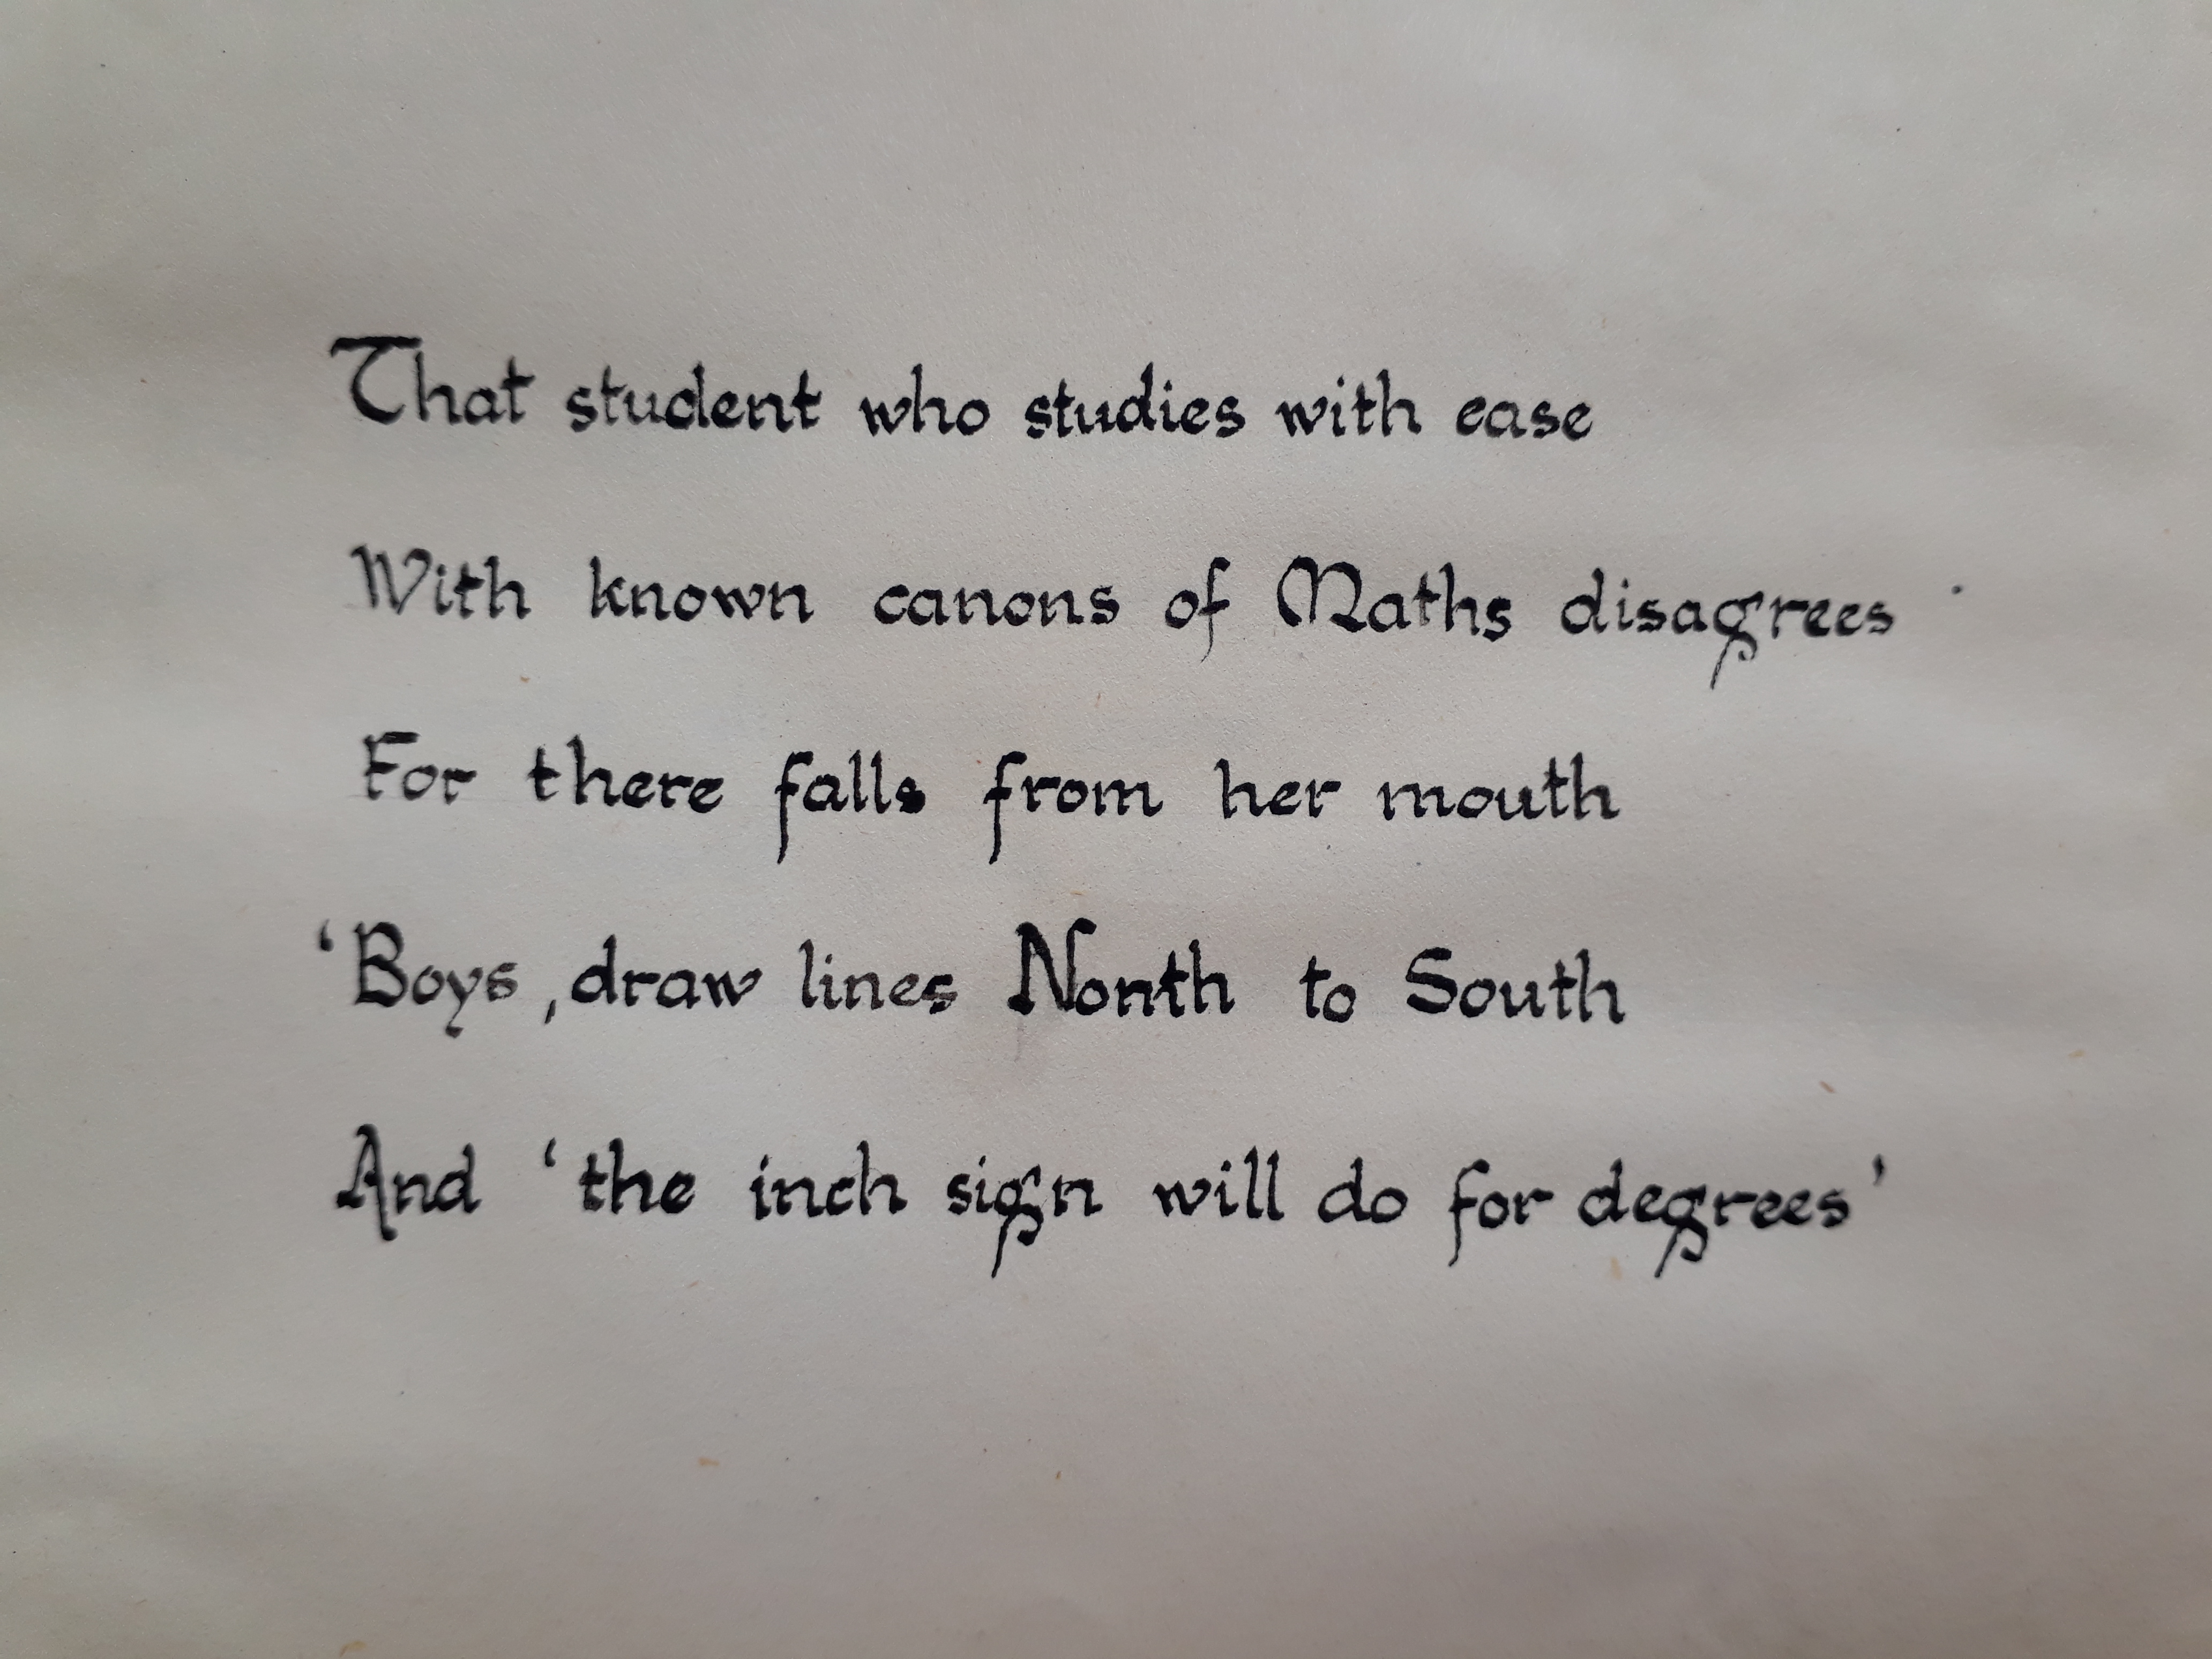 That student who studies with ease
With known canons of Maths disagrees
For there falls from her mouth
‘Boys, draw lines Nonth to South
And ‘the inch sign will do for degrees’